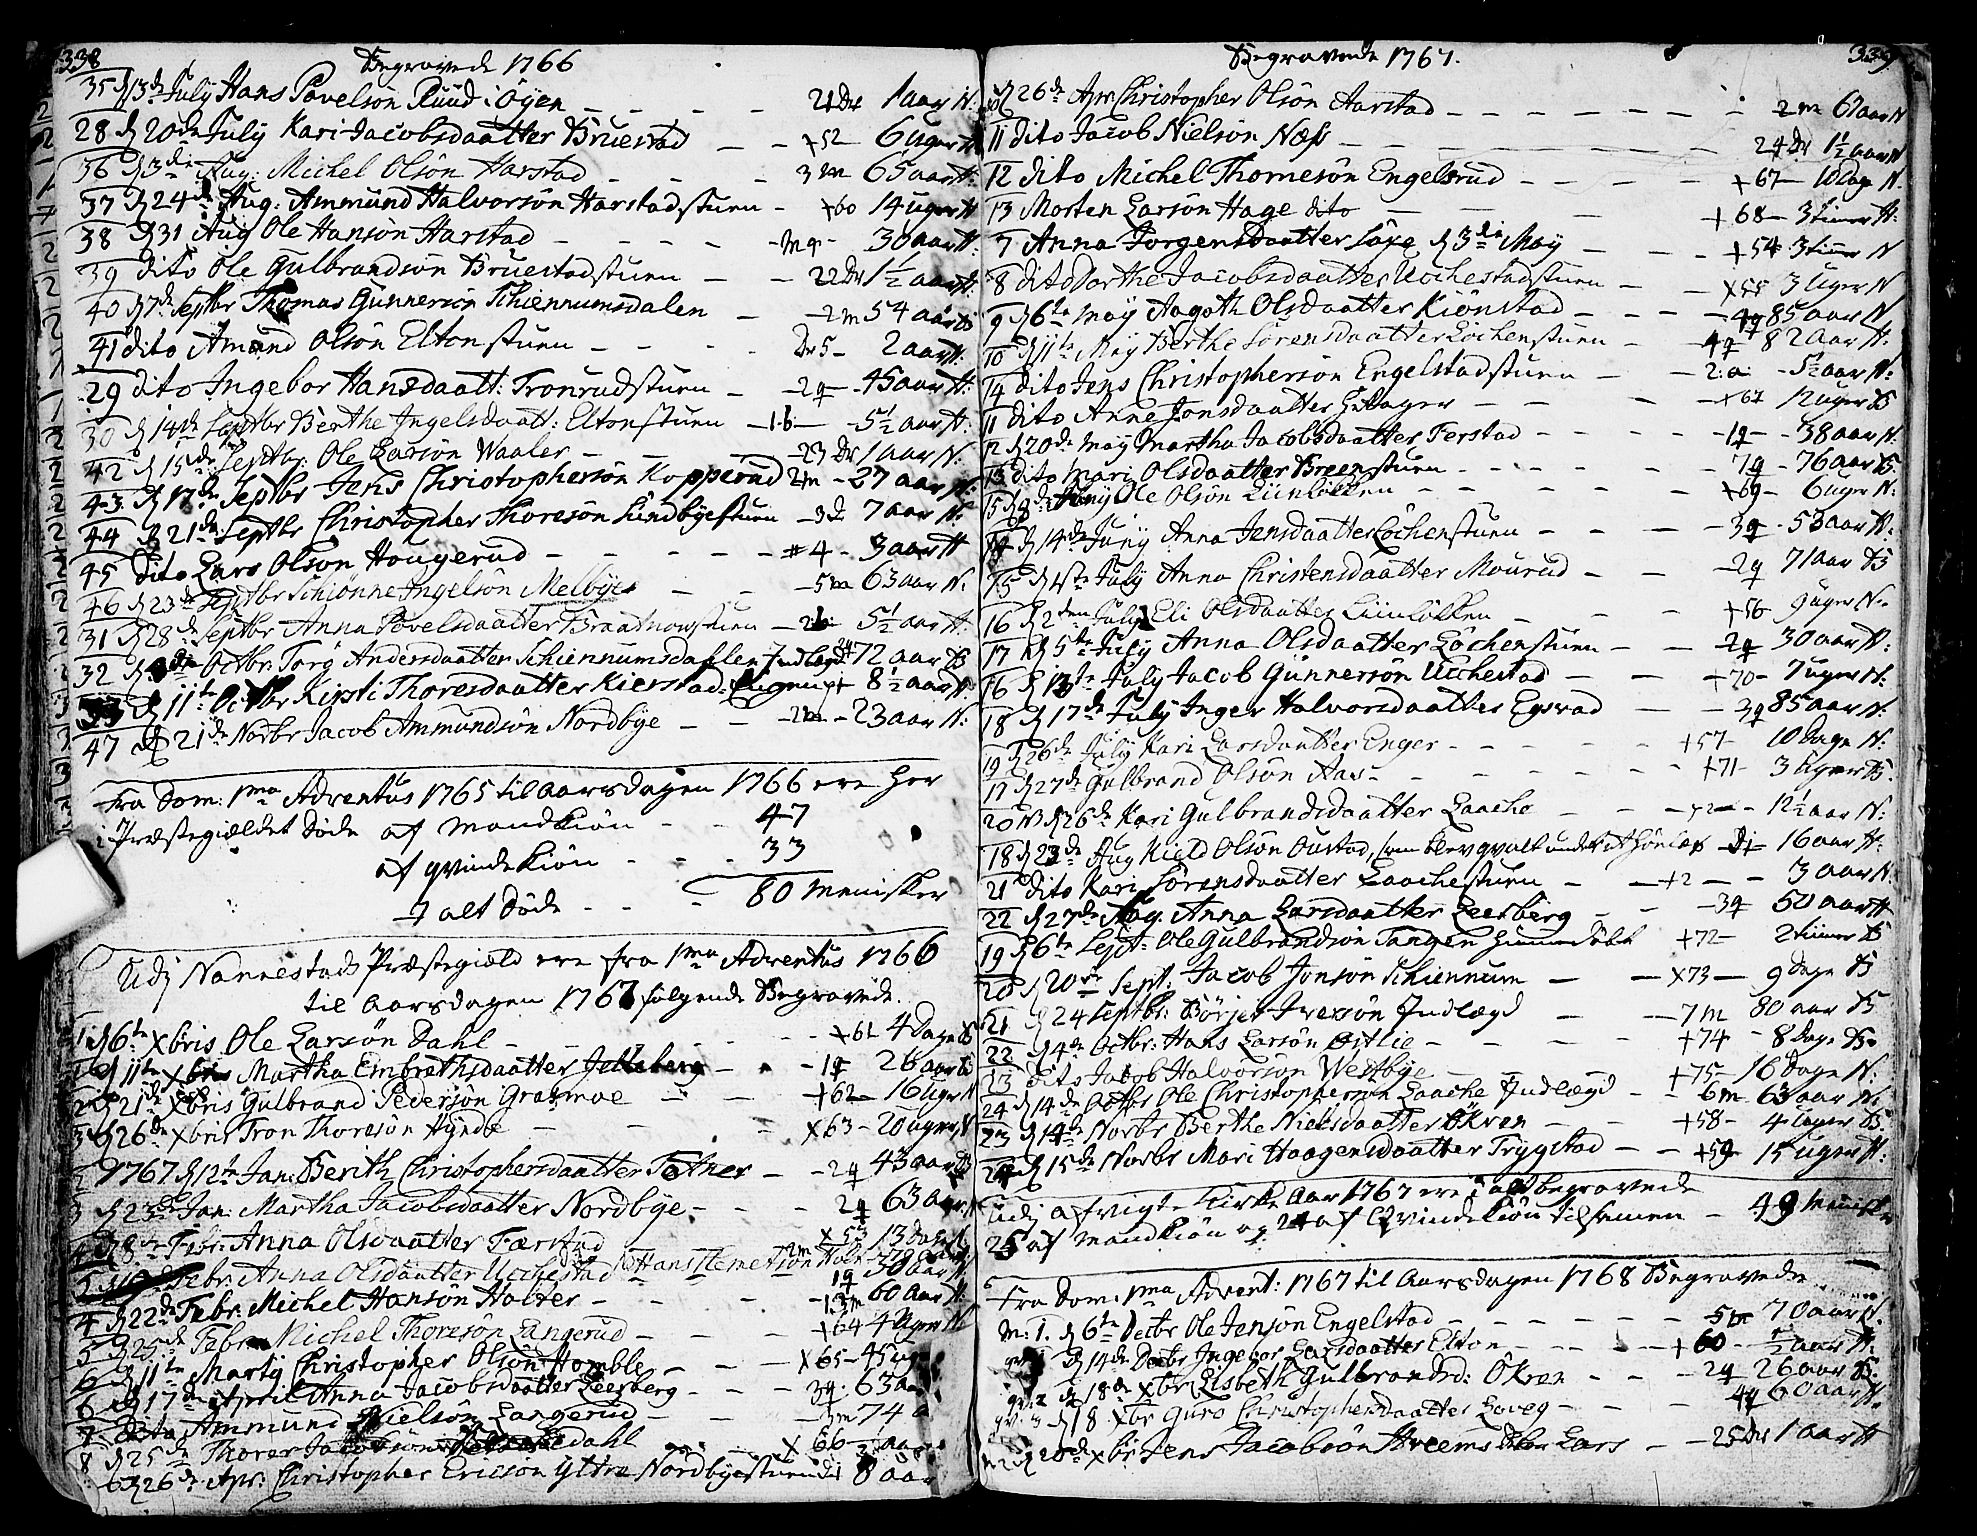 338
Begravede 1766
35 d 13de July Hans Povelsön Ruud i Öyen - - - - 21 Dr 1 aar N.
28 d 20de July Kari Jacobsdaatter Bruestad - - +52 6 uger H
36 d 3die Aug: Michel Olsön Harstad - - - 3 m 65 aar H.
37 d 24de Aug: Ammund Halvorsön Harstadstuen - +60 14 uger H
38 d 31 Aug Ole Hansön Harstad - - - - 30 aar H.
39 dito Ole Gulbrandsön Bruestadstuen - - 22 Dr 1½ aar H.
40 d 7de Septbr Thomas Gunnersön Schiennumsdalen - - 2 m 54 aar B
41 dito Amund Olsön Eltonstuen - - - - Dr 5 - 2 aar H.
29 dito Ingebor Hansdaatt: Tronrudstuen - - 2 q - 45 aar H.
30 d 14de Septbr Berthe Ingelsdaatt: Eltonstuen - 1 b - 5½ aar H.
42 d 15de Septbr: Ole Larsön Waaler - - - 23 Dr 1 aar N.
43 d 17de Septbr Jens Christophersön Kopperud 2 m - 27 aar N.
44 d 21de Septbr Christopher Thoresön Lundbyestuen - 3 d 7 aar N.
45 dito Lars Olsön Hougerud - - - - 4 - 3 aar H
46 d 23de Septbr Schiönne Ingelsön Melbye - - - 5 m 63 aar N.
31 d 28de Septbr Anna Povelsdaatter Braatnowstuen - 2 b 5½ aar H.
32 d Octbr. Torg Andersdaatter Schiennumsdahlen Indlagd 72 aar B
33 d 11te Octbr Kirsti Thoresdaatter Kierstad 8½ aar N.
47 d 21de Norbr Jacob Ammundsön Nordbye - - 2 m - 23 aar N:
Fra Dom: 1ma Adventus 1765 til Aarsdagen 1766 ere her
i Præstegieldet Döde af Mandkiön - - 47
af qvindekiön - - - 33
I alt Döde - - - 80 Menisker
Udj Nannestads Præstegield ere fra 1ma Adventus 1766
til Aarsdagen 1767 fölgende Begravede.
1 d 6te Xbris Ole Larsön Dahl - - - - +61 4 Dage B
1 d 11te Xbris Martha Embrethsdaatter - - 1 q 26 aar
2 d 21de Xbris Gulbrand Pedersön Grasmoe - - +62 - 16 Uger N
3 d 26de Xbris Tron Thoresön Hynde - - - X63 - 20 uger N
2 1767 d 12te Jan: Berith Christophersdaatter Totner - - 2 q 43 aar B
3 d 23de Jan: Martha Jacobsdaatter Nordbye - - - 2 q 63 aar N
4 d 8de Febr: Anna Olsdaatter Færstad X 53 13 Dage
Febr. Anna Olsdaatter Ucchestad 1 q 30 aar
Hans Clemetsön 2 m
4 d 22de Febr: Michel Hansön Holter - - - - 60 Aar H
5 d 25de Febr Michel Thoresön Langerud - - - +64 4 Uger N
6 d 11te Marty Christopher Olsön Homble - - - X65 - 45 ug
6 d 17de April Anna Jacobsdaatter Leesberg - - - 3 q: 63 aa
7 dito Ammund Nielsön Langerud - - - 3 m 74 a
8 d 25de Thorer Jacobsön dahl X 66 - aar
d 26de Apr: Christopher Ericsön Yttre Nordbyestuen di 8 aar
Begravede 1767.
339
10 d 26de Apr Christopher Olsön Aarstad - - - - 2 m 61 aar N
11 dito Jacob Nielsön Næss - - - - 24 Dr 1½ aar N
12 dito Michel Thomesön Engelsrud - - - - +67 - 10 Dage N.
13 Morten Larsön Hage dito - - - +68 - 3 timer H.
7 Anna Jorgensdaatter Löxe d 3die May - - - +54 3 timer N
8 dito Dorthe Jacobsdaatter Ucchestadstuen - - X55 3 Uger N
9 d 6te May Aagoth Olsdaatter Kiönstad - - - 4 q 85 aar N.
10 d 11te May Berthe Sörensdaatter Löchenstuen - 4 q 82 Aar H.
14 dito Jens Christophersön Engelstadstuen - - 2 a - 5½ aar H.
11 dito Anne Jonsdaatter - - - - X67 12 uger B
12 d 20de May Martha Jacobsdaatter Ferstad - - - - 1 q - 38 aar N.
13 dito Mari Olsdaatter Breenstuen - - - - 7 q - 76 aar B.
15 d 8de Juny Ole Olsön Liinlökken - - - - +69 - 6 uger N.
14 d 14de Juny Anna Jensdaatter Löchenstuen - - - 3 q - 53 aar H.
15 d 1ste July Anna Christensdaatter Mourud - - 2 q 71 aar B
16 d 2den July Eli Olsdaatter Liinlökken - - - +56 9 uger N.
17 d 5te July Anna Olsdaatter Löchenstuen - - 2 q 30 aar H.
16 d te July Jacob Gunnersön Ucchestad - - - +70 - 7 uger N.
18 d 17de July Inger Halvorsdaatter Egsrad - - 3 q 85 aar N.
19 d 26de July Kari Larsdaatter Enger - - - - +57 - 10 Dage N.
17 d 27de Gulbrand Olsön Aas - - - - +71 - 3 Uger B.
20 NB d 26de Kari Gulbrandsdaatter Laache - - 12½ aar N.
18 d 23de Aug Kield Olsön Oustad, som blev qvalt under et - Di - 16 aar H.
21 dito Kari Sörensdaatter Laachestuen - - +2 - - 3 aar N.
22 d 27de Aug. Anna Larsdaatter Leesberg - - - 3 q 50 aar H
19 d 6te Sept: Ole Gulbrandsön Tangen hiemmedöbt +72 - 2 timer B
20 d 20de Sept. Jacob Jonsön Schiennum - - X73 - 9 Dage B
21 d 24 Septbr: Börje Iversön Indlægd - - 7 m 80 aar B
22 d 4de Octbr: Hans Larsön Östlie - - - +74 - 8 Dage B
23 dito Jacob Halvorsön Westbye - - - +75 - 16 Dage N.
24 d 14de Octbr Ole Christophersön Laache Indlægd - 6 m - 63 aar N.
23 d 14de Norbr Berthe Nielsdaatter Ökren - - - +58 - 4 Uger B.
24 d 15de Norbr Mari Haagensdaatter Trygstad - - +59 - 15 uger H.
Udj afvigte Kirke Aar 1767 ere i alt begravede
25 af Mandkiön og 24 af Qvindekiön tilsamen - 49 Menisker
Fra Dom: 1ma Advent: 1767 til Aarsdagen 1768 Begravede
M: 1. d 6te Decbr Ole Jensön Engelstad - - - - 5 m 70 aar N.
qv: 1 d 14de Decbr Ingebor Larsdaatter Elton - - - - +60 - ½ aar H.
qv: 2 d 18de Xbr Lisbeth Gulbrandsd: Ökren - - - 2 q 26 aar B.
qv: 3 d 18 Xbr Guro Christophersdaatter Loveg - - - 4 q 60 Aar H.
m 2 d 20de Xbr Jens Jacobsön Lars - - 25 Dr 1 aar H